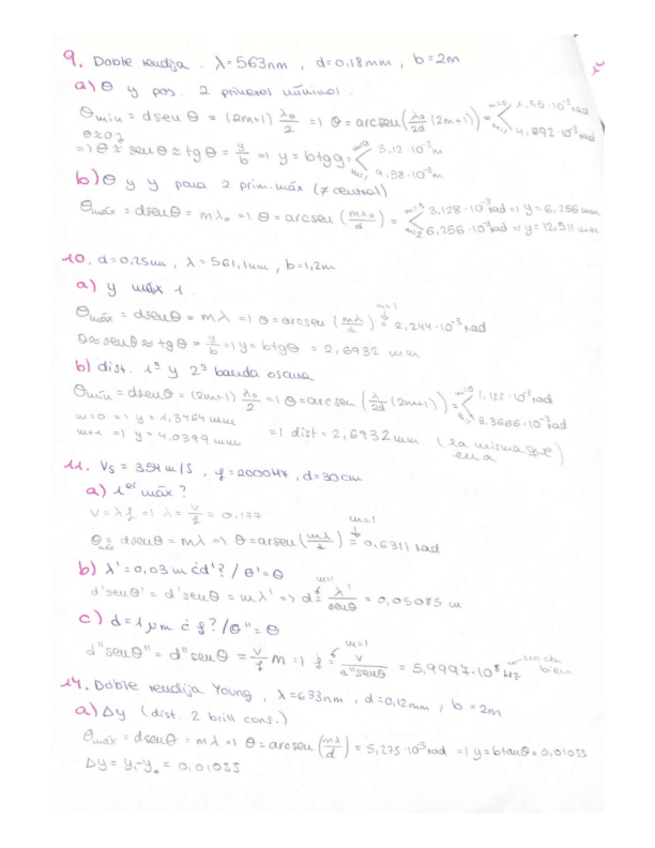 9. Doble rendija. λ=563nm, d=0,18mm, b=2m
a) θ y pos. 2 primeros mínimos.
θmin = d senθ = (2m+1) λ₀/2 =) θ = arcsen(λ₀/2d (2m+1)) = m=0 1,56·10⁻³ rad
m=1 4,692·10⁻³ rad
=) θ ≈ senθ ≈ tgθ = y/b =) y = b tgθ = m=0 3,12·10⁻³ m
m=1 9,38·10⁻³ m
b) θ y y para 2 prim. máx (≠ central)
θmáx = d senθ = mλ₀ =) θ = arcsen (mλ₀/d) = 3,128·10⁻³ rad =) y = 6,256 mm
m=2 6,256·10⁻³ rad =) y = 12,511 mm
10. d=0,25mm, λ=561,1nm, b=1,2m
a) y máx 1
θmáx = d senθ = mλ =) θ = arcsen (mλ/d) m=1 = 2,244·10⁻³ rad
θ≈senθ≈tgθ = y/b =) y = b tgθ = 2,6932 mm
b) dist. 1ª y 2ª banda oscura
θmin = d senθ = (2m+1) λ₀/2 =) θ = arcsen (λ/2d (2m+1)) = m=0 1,122·10⁻³ rad
m=1 3,3666·10⁻³ rad
m=0 =) y = 1,3464 mm
m=1 =) y = 4,0399 mm =) dist = 2,6932 mm (la misma que en a)
11. Vs = 354 m/s, f=2000Hz, d=30cm
a) 1er máx?
v = λf =) λ = v/f = 0,177
θmáx = d senθ = mλ => θ = arcsen (mλ/d) m=1 = 0,6311 rad
b) λ'=0,03m ¿d'? / θ'=θ
d'senθ' = d'senθ = mλ' => d' m=1 = λ'/senθ = 0,05085 m
c) d=1μm ¿f? / θ''=θ
d''senθ'' = d''senθ = v/f m =) f m=1 = v/d''senθ = 5,9997·10⁸ Hz no da bien
14. Doble rendija Young, λ=633nm, d=0,12mm, b=2m
a) Δy (dist. 2 brill cons.)
θmáx = d senθ = mλ =) θ = arcsen (mλ/d) = 5,275·10⁻³ rad =) y = b tanθ = 0,01055
Δy = y₁-y₀ = 0,01055